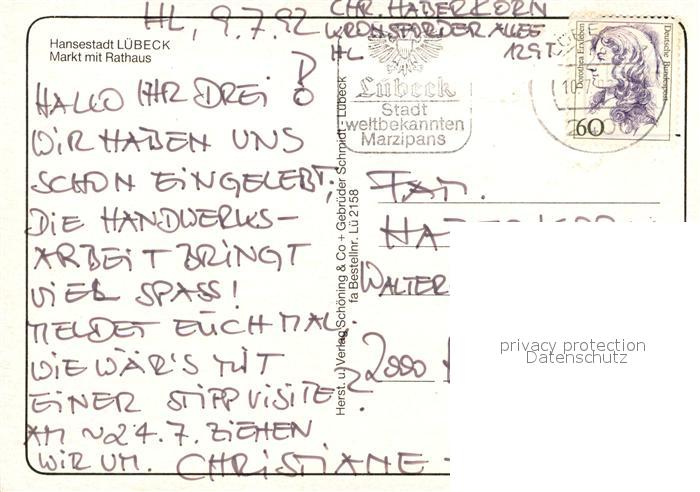 HL, 9.7.92
CHR. HABERKORN
KRONSFORDER ALLEE
HL 129T
Hansestadt LÜBECK
Markt mit Rathaus
HALLO IHR DREI!
WIR HABEN UNS
SCHON EINGELEBT,
DIE HANDWERKS-
ARBEIT BRINGT
VIEL SPASS!
MELDET EUCH MAL.
WIE WÄR'S MIT
EINER STIPPVISITE?
AM ~24.7. ZIEHEN
WIR UM. CHRISTIANE -
Herst. u. Verlag Schöning & Co + Gebrüder Schmidt - Lübeck
fa Bestellnr. Lü 2158
Lübeck
Stadt
weltbekannten
Marzipans
Dorothea Erxleben
Deutsche Bundespost
60
FAM.
WALTER
2000
privacy protection
Datenschutz